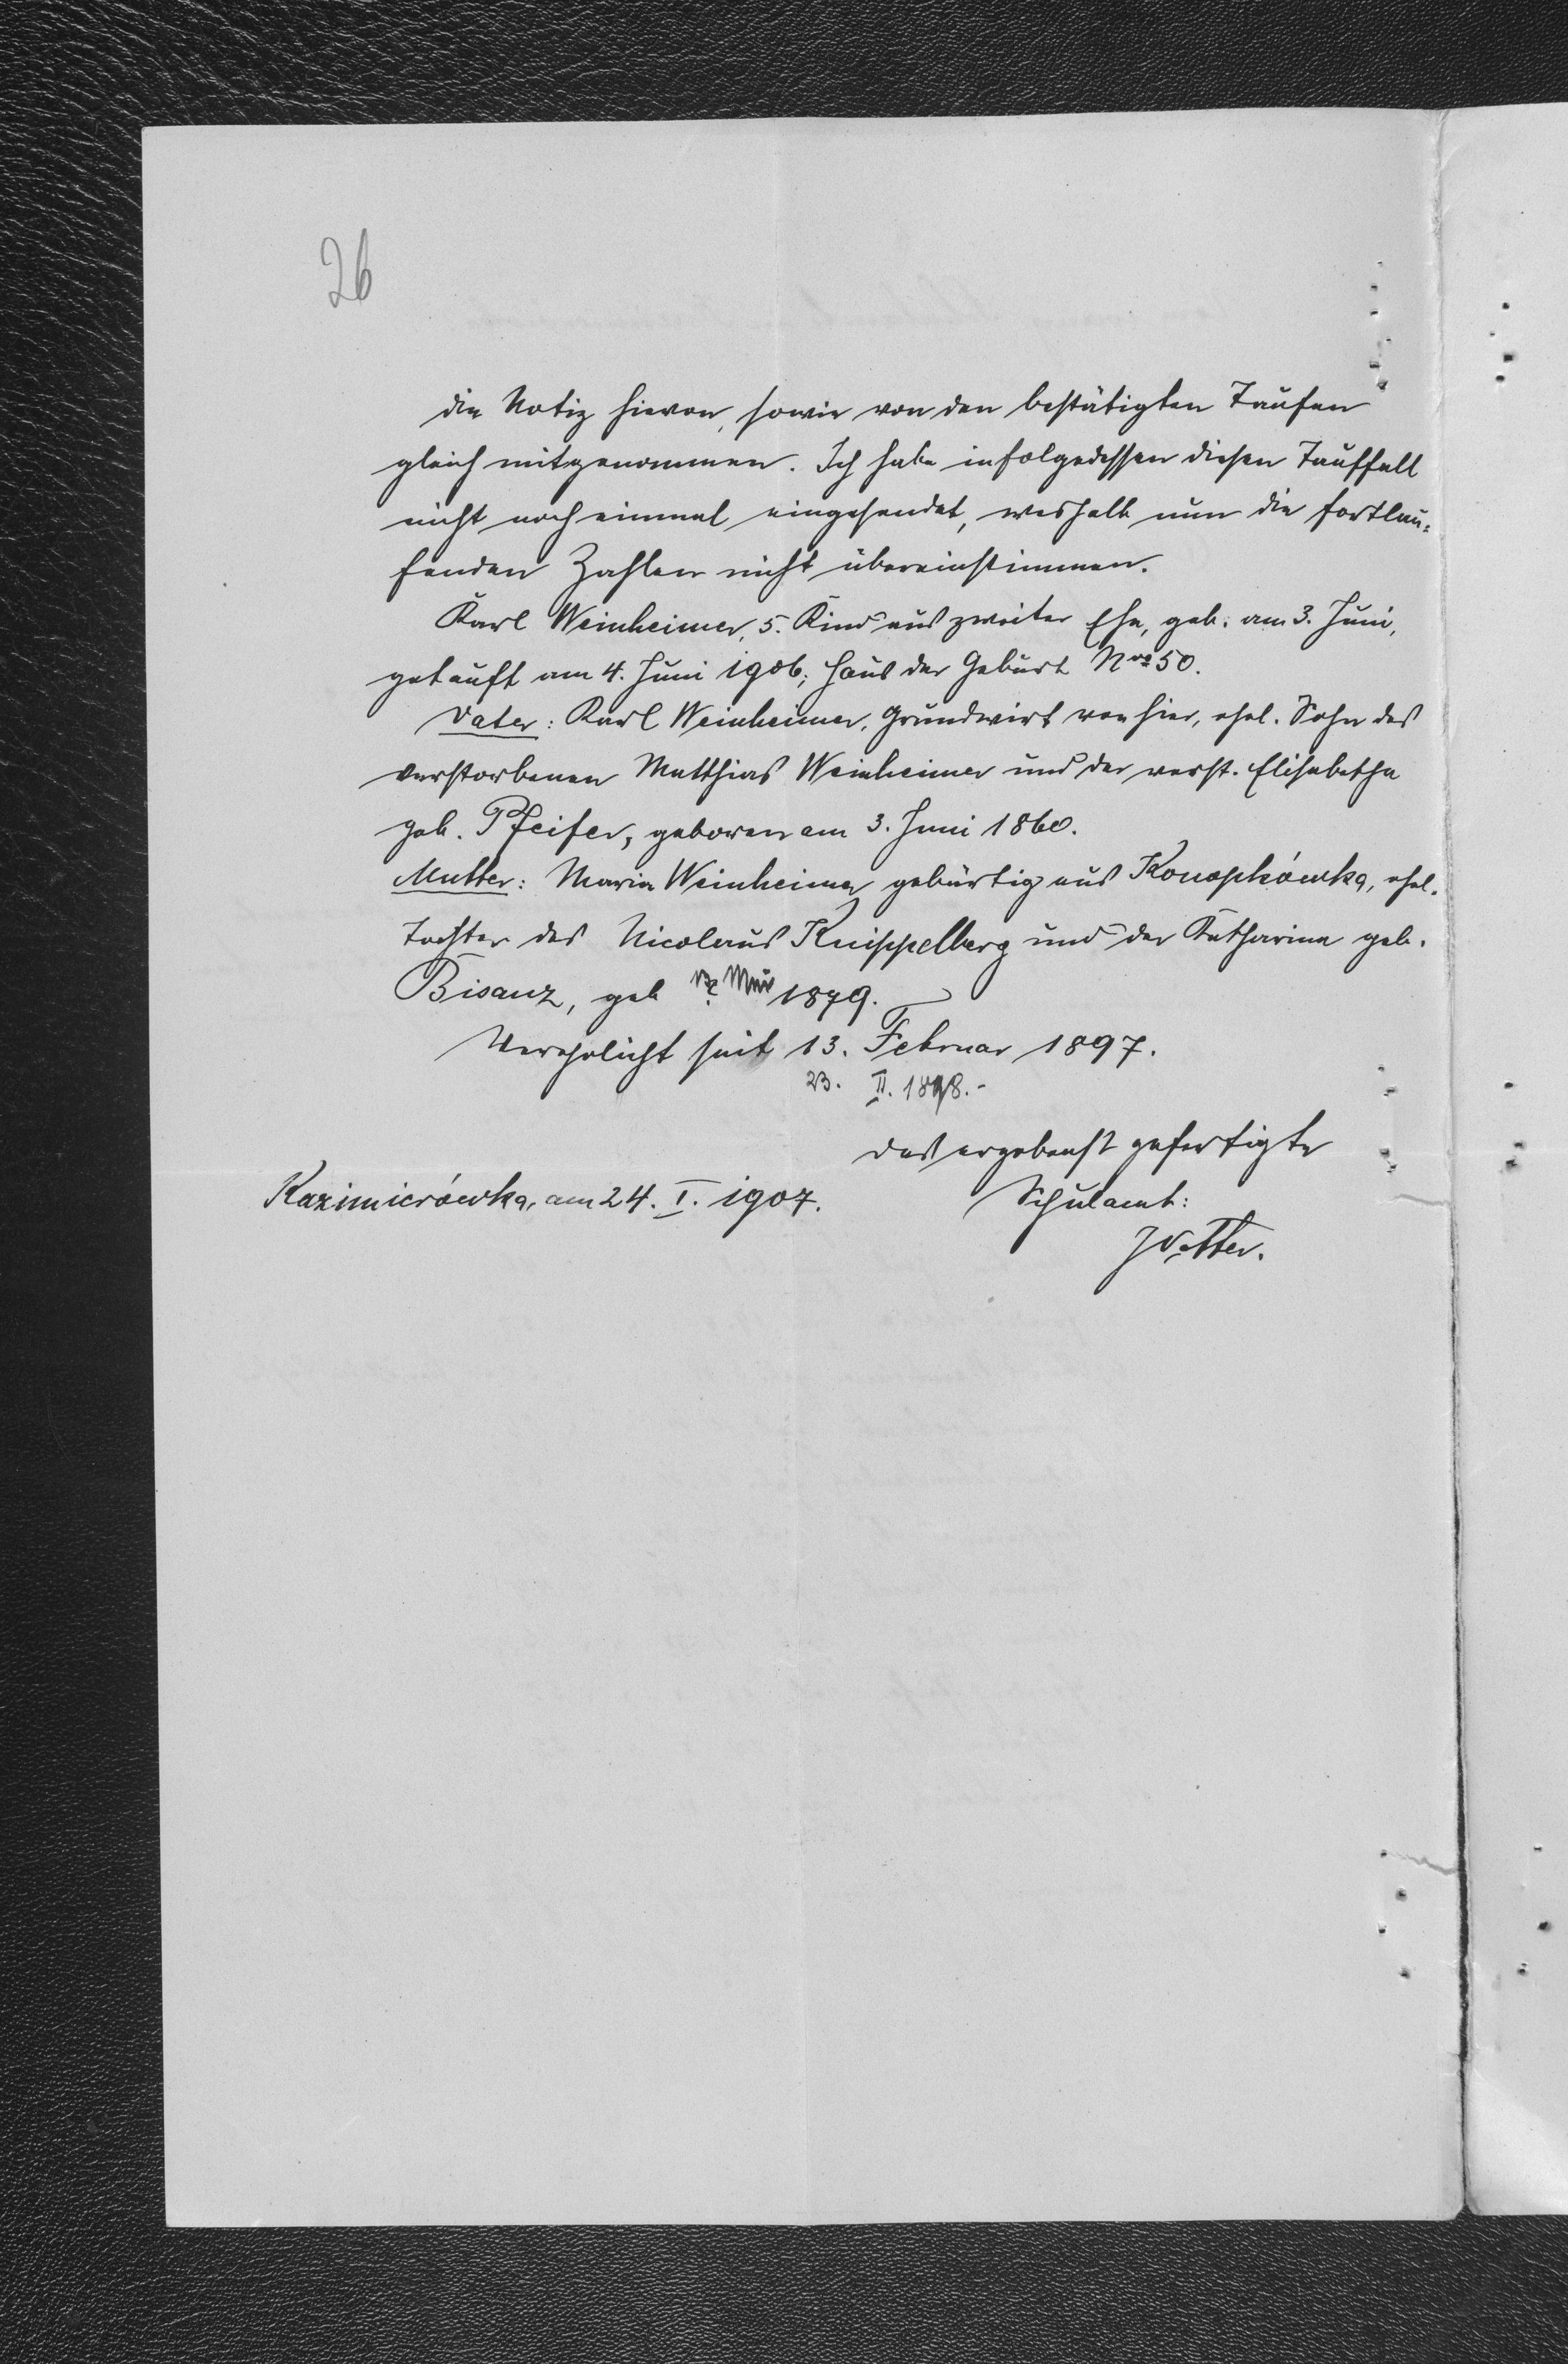 26
die Notiz hievon, sowie von den bestätigten Taufen
gleich mitgenommen. Ich habe infolgedessen diesen Tauffall
nicht noch einmal eingesendet, weshalb nun die fortlau-
fenden Zahlen nicht übereinstimmen.
Karl Weinheimer, 5. Kind aus zweiter Ehe, geb. am 3. Juni,
getauft am 4. Juni 1906; Haus der Geburt Nro 50.
Vater: Karl Weinheimer, Grundwirt von hier, ehel. Sohn des
verstorbenen Matthias Weinheimer und der verst. Elisabetha
geb. Pfeifer, geboren am 3. Juni 1860.
Mutter: Maria Weinheimer gebürtig aus Konopkówka, ehel.
Tochter des Nicolaus Knippelberg und der Katharina geb.
Bisanz, geb 1879.
Verehelicht seit 13. Februar 1897.
23. II. 1898.-
das ergebenst gefertigte
Kazimierówka, am 24. I. 1907.
Schulamt:
JVetter.